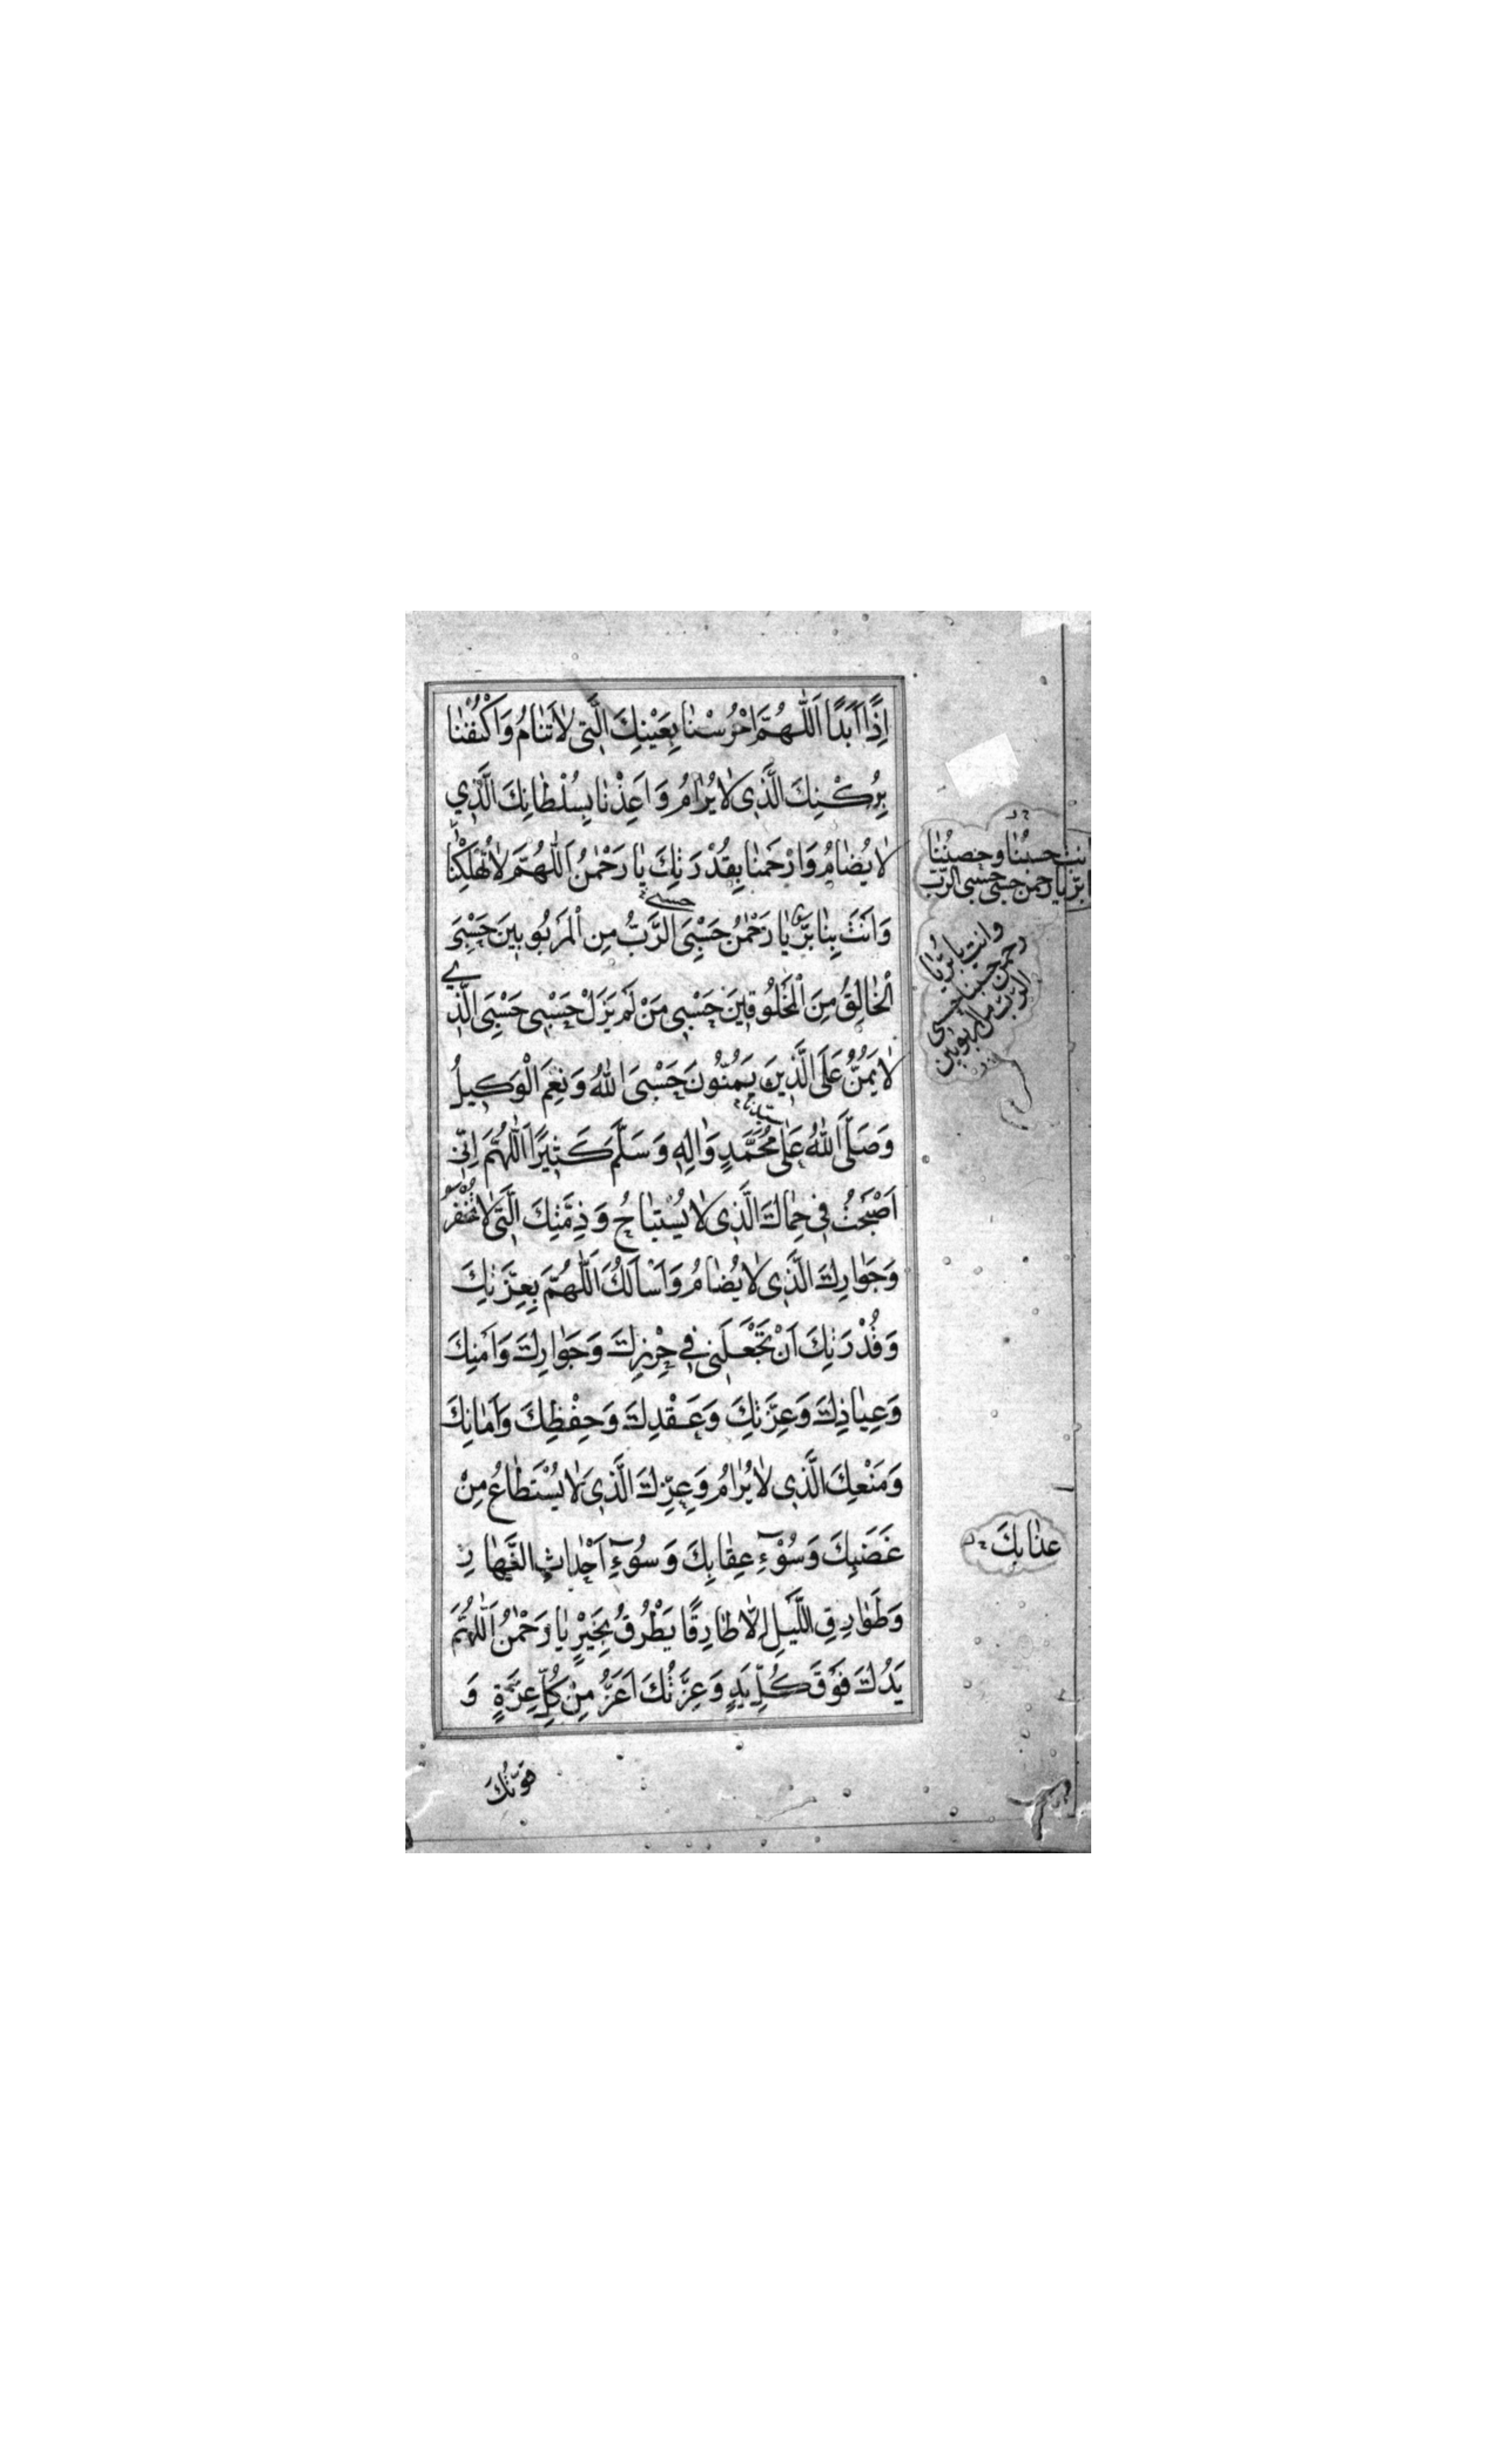 اِذًا اَبَدًا اَللّٰهُمَّ احْرُسْنٰا بِعَيْنِكَ الَّتِى لاٰتَنٰامُ وَاكْنُفْنٰا
بِرُكْنِكَ الَّذِى لاٰيُرٰامُ وَاَعِذْنٰا بِسُلْطٰانِكَ الَّذِي
لاٰيُضٰامُ وَارْحَمْنٰا بِقُدْرَتِكَ يٰا رَحْمٰنُ اَللّٰهُمَّ لاٰتُهْلِكْنٰا
وَاَنْتَ بِنٰا بَرٌّ يٰا رَحْمٰنُ حَسْبِىَ الرَّبُّ مِنَ الْمَرْبُوبِينَ حَسْبِىَ
الْخٰالِقُ مِنَ الْمَخْلُوقِينَ حَسْبِى مَنْ لَمْ يَزَلْ حَسْبِى حَسْبِىَ الَّذِي
لاٰيَمُنُّ عَلَى الَّذِينَ يَمُنُّونَ حَسْبِىَ اللّٰهُ وَنِعْمَ الْوَكِيلُ
وَصَلَّى اللّٰهُ عَلٰى مُحَمَّدٍ وَاٰلِهِ وَسَلَّمَ كَثِيرًا اَللّٰهُمَّ اِنِّى
اَصْبَحْتُ فِى حِمٰاكَ الَّذِى لاٰيُسْتَبٰاحُ وَذِمَّتِكَ الَّتِى لاٰتُخْفَرُ
وَجَوٰارِكَ الَّذِى لاٰيُضٰامُ وَاَسْاَلُكَ اَللّٰهُمَّ بِعِزَّتِكَ
وَقُدْرَتِكَ اَنْ تَجْعَلَنِى فِى حِرْزِكَ وَجَوٰارِكَ وَاَمْنِكَ
وَعِيٰاذِكَ وَعِزَّتِكَ وَعَقْدِكَ وَحِفْظِكَ وَاَمٰانِكَ
وَمَنْعِكَ الَّذِى لاٰيُرٰامُ وَعِزِّكَ الَّذِى لاٰيُسْتَطٰاعُ مِنْ
غَضَبِكَ وَسُوْءِ عِقٰابِكَ وَسُوْءِ اَحْدٰاثِ النَّهٰارِ
وَطَوٰارِقِ اللَّيْلِ اِلاّٰ طٰارِقًا يَطْرُقُ بِخَيْرٍ يٰا رَحْمٰنُ اَللّٰهُمَّ
يَدُكَ فَوْقَ كُلِّ يَدٍ وَعِزَّتُكَ اَعَزُّ مِنْ كُلِّ عِزَّةٍ وَ
قُوَّتُكَ
انت حسبنا وحصننا
يا رحمن حسبى حسبى الرب
وانت بنا بر يا
رحمن حسبنا حسبى
الرب من المربوبين
عذٰابِكَ